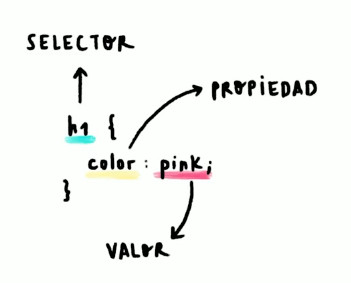 SELECTOR
PROPIEDAD
h1 {
color : pink;
}
VALOR